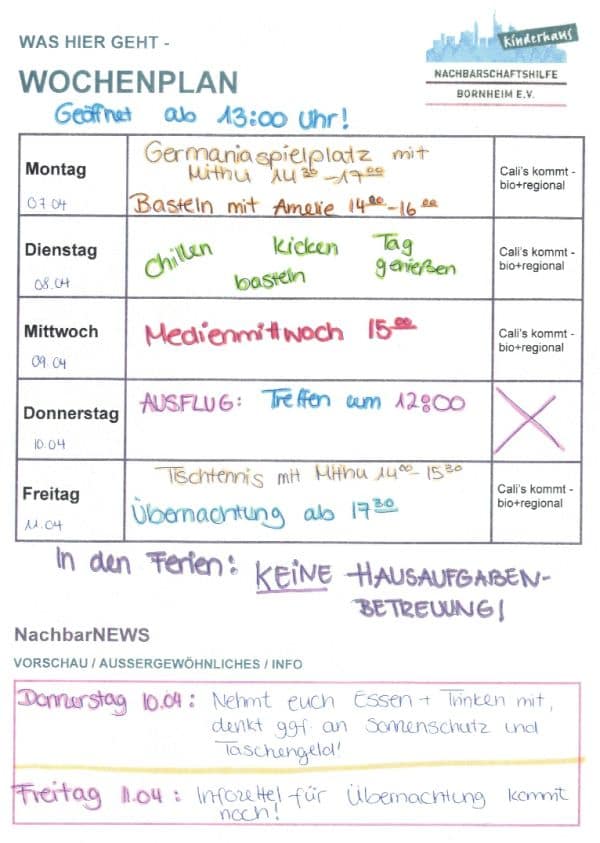 WAS HIER GEHT -
WOCHENPLAN
Kinderhaus
NACHBARSCHAFTSHILFE
BORNHEIM E.V.
Geöffnet ab 13:00 Uhr!
Montag
07.04
Germaniaspielplatz mit
Mithu 14 30 - 17 00
Basteln mit Amelie 14 00 - 16 00
Cali's kommt -
bio+regional
Dienstag
08.04
Chillen kicken Tag
basteln genießen
Cali's kommt -
bio+regional
Mittwoch
09.04
Medienmittwoch 15 00
Cali's kommt -
bio+regional
Donnerstag
10.04
AUSFLUG: Treffen um 12:00
Freitag
11.04
Tischtennis mit Mithu 14 00 - 15 30
Übernachtung ab 17 30
Cali's kommt -
bio+regional
In den Ferien: KEINE HAUSAUFGABEN-
BETREUUNG!
NachbarNEWS
VORSCHAU / AUSSERGEWÖHNLICHES / INFO
Donnerstag 10.04: Nehmt euch Essen + Trinken mit,
denkt ggf. an Sonnenschutz und
Taschengeld!
Freitag 11.04: Infozettel für Übernachtung kommt
noch!